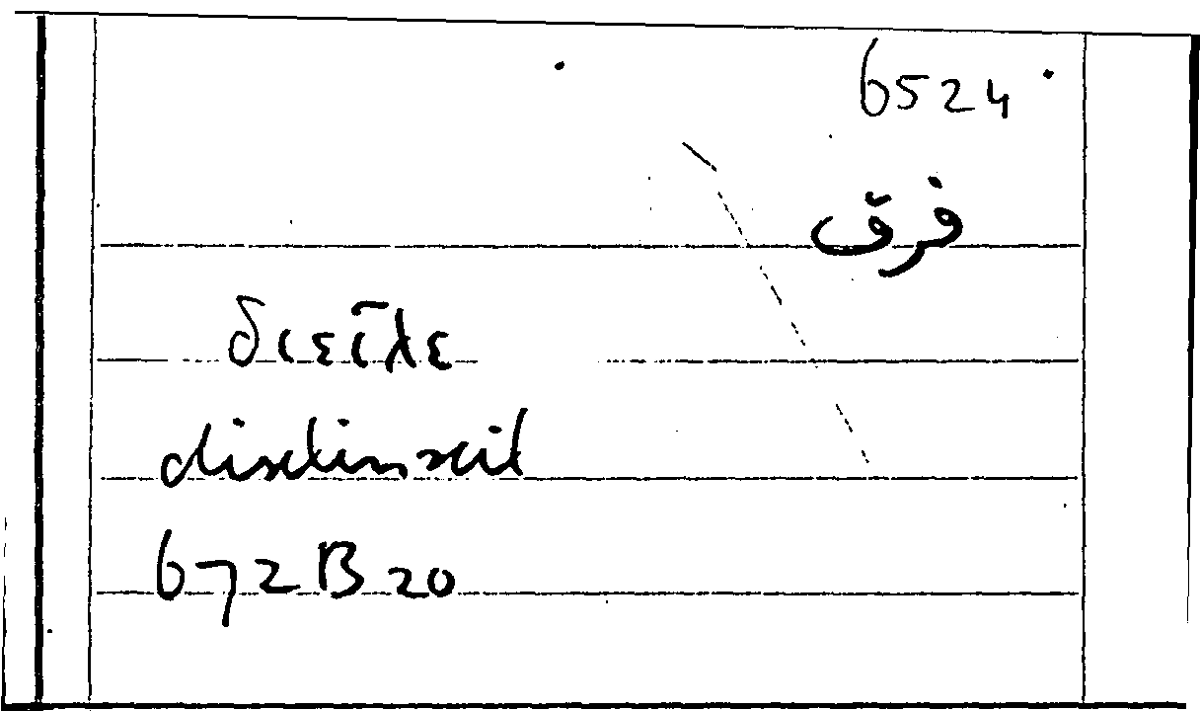 6524
فرق
διεῖλε
distinxit
672 B 20